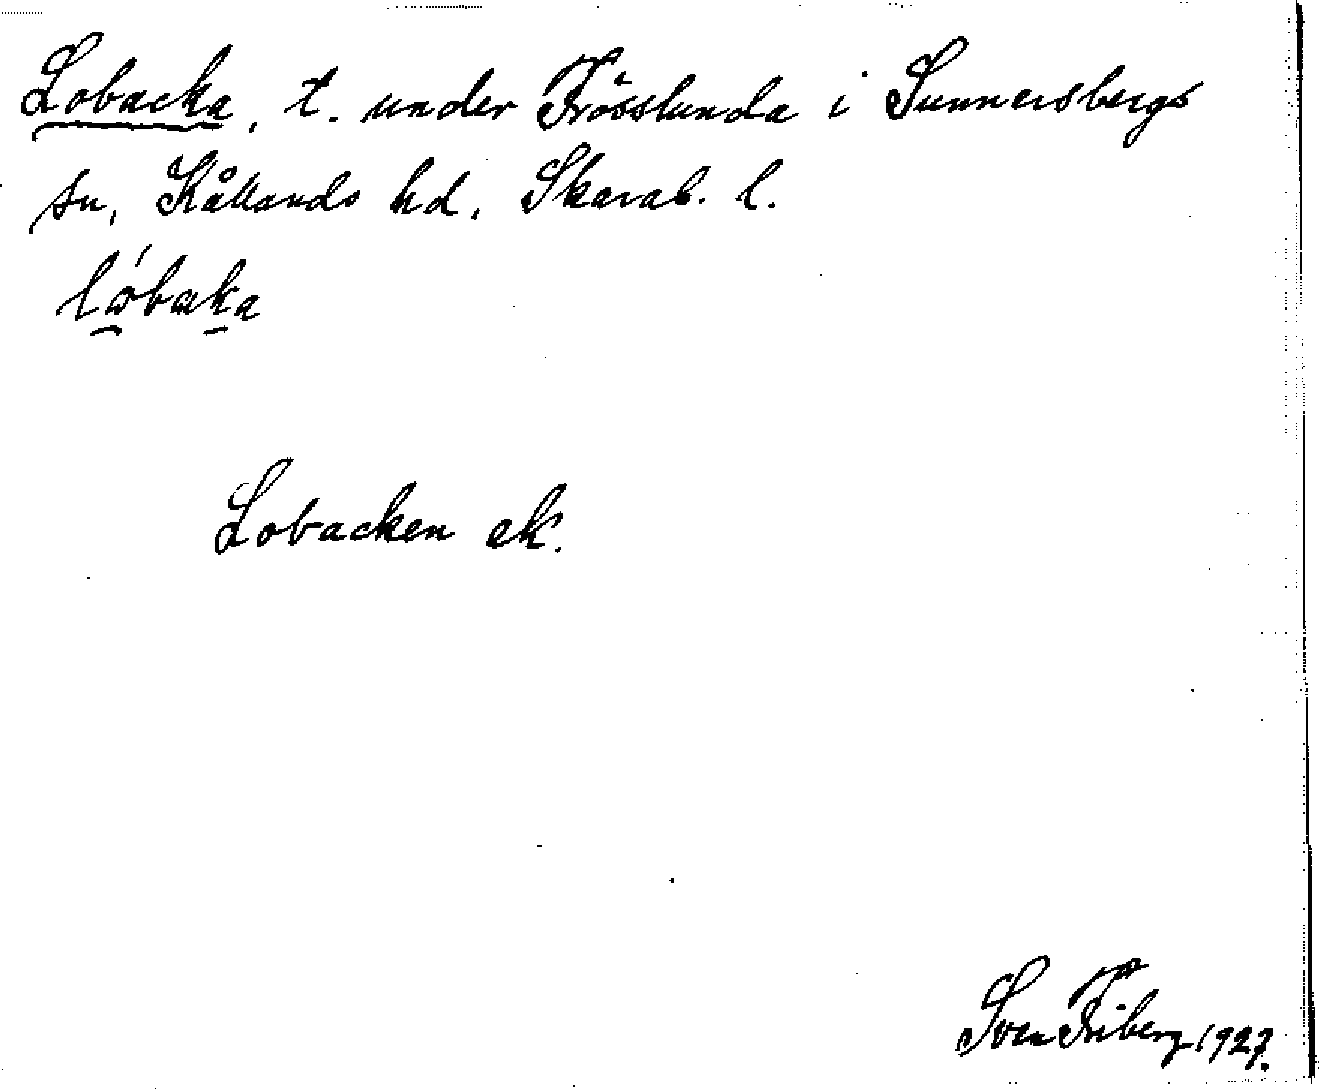 Lobacka, t. under Frösslunda i Sunnersbergs
sn, Kållands hd, Skarab. l.
lὼbaka
Lobacken ek.
Sven Friberg 1927.